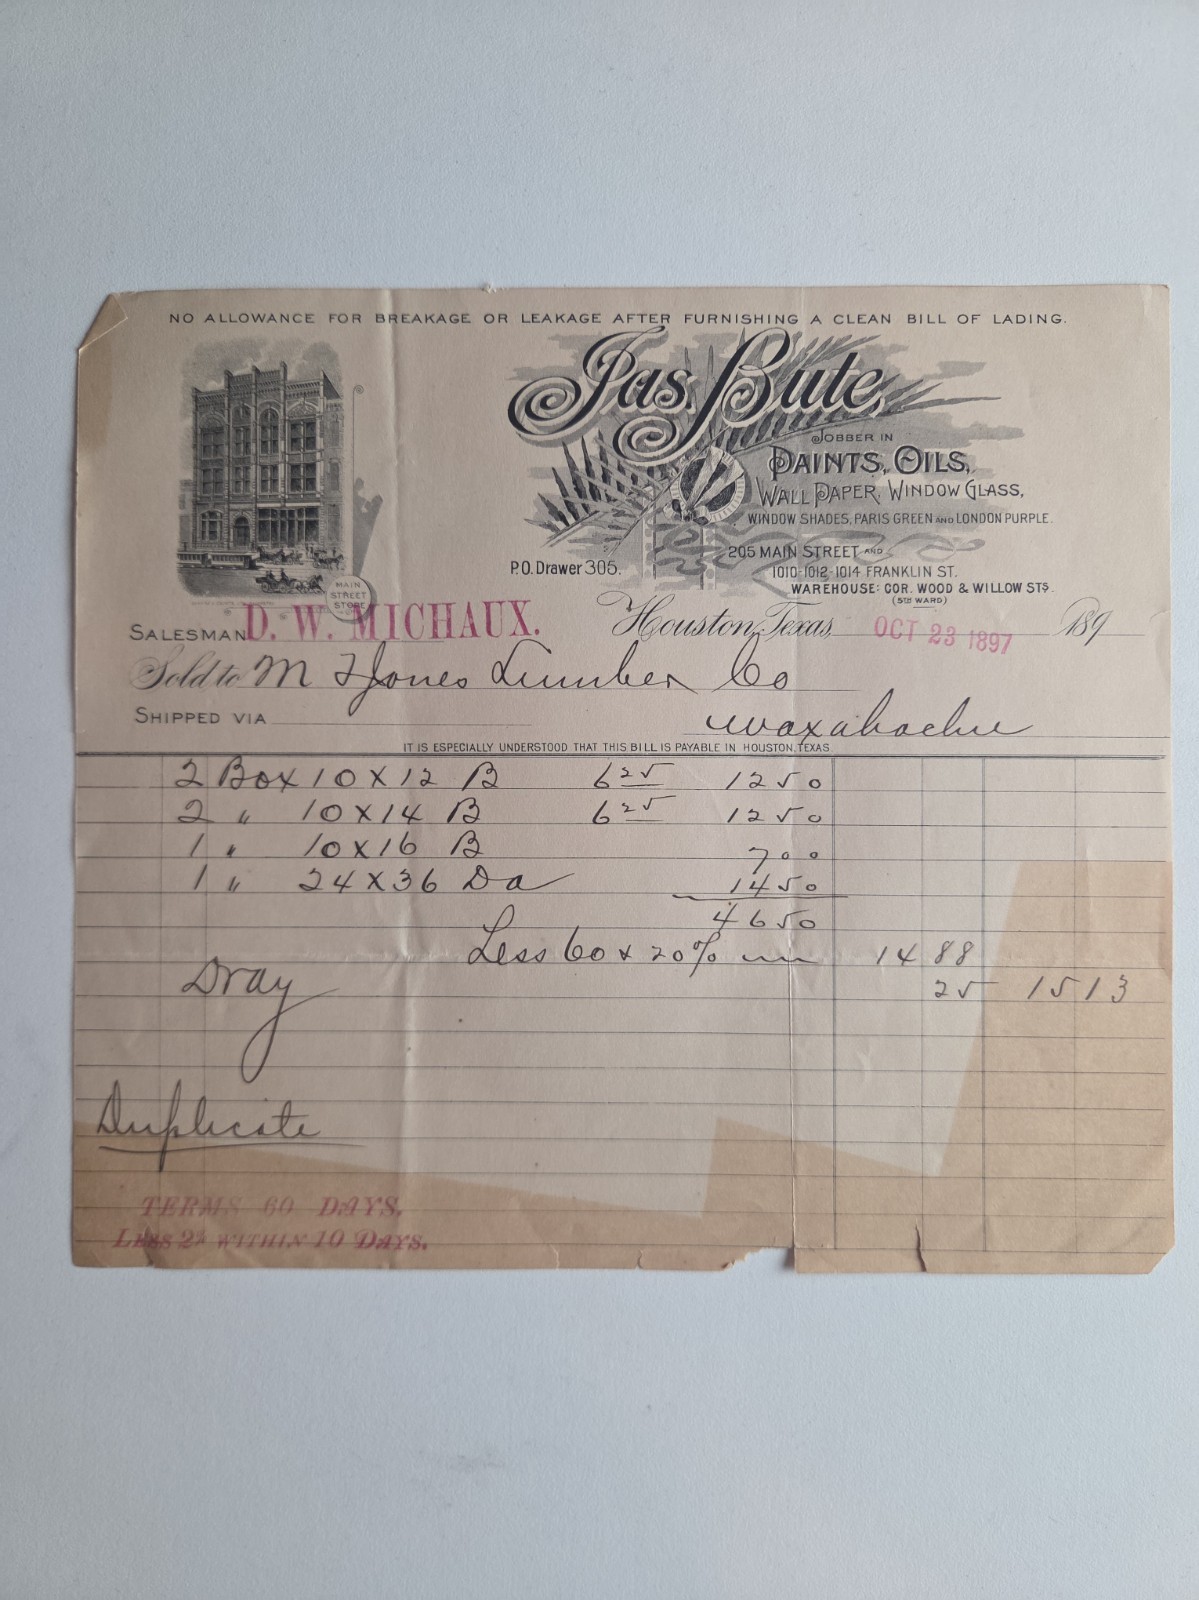 NO ALLOWANCE FOR BREAKAGE OR LEAKAGE AFTER FURNISHING A CLEAN BILL OF LADING.
Jas. Bute,
JOBBER IN
PAINTS, OILS,
WALL PAPER, WINDOW GLASS,
WINDOW SHADES, PARIS GREEN AND LONDON PURPLE.
205 MAIN STREET AND
1010-1012-1014 FRANKLIN ST.
WAREHOUSE: COR. WOOD & WILLOW STS.
(5TH WARD)
P.O. Drawer 305.
MAIN STREET STORE
SALESMAN D. W. MICHAUX.
Houston, Texas, OCT 23 1897 189
Sold to M T Jones Lumber Co
SHIPPED VIA Waxahachie
IT IS ESPECIALLY UNDERSTOOD THAT THIS BILL IS PAYABLE IN HOUSTON, TEXAS
2 Box 10 x 12 B 6 25 12 50
2 " 10 x 14 B 6 25 12 50
1 " 10 x 16 B 7 00
1 " 24 x 36 Da 14 50
46 50
Less 60 & 20% 14 88
Dray 25 15 13
Duplicate
TERMS 60 DAYS.
LESS 2% WITHIN 10 DAYS.